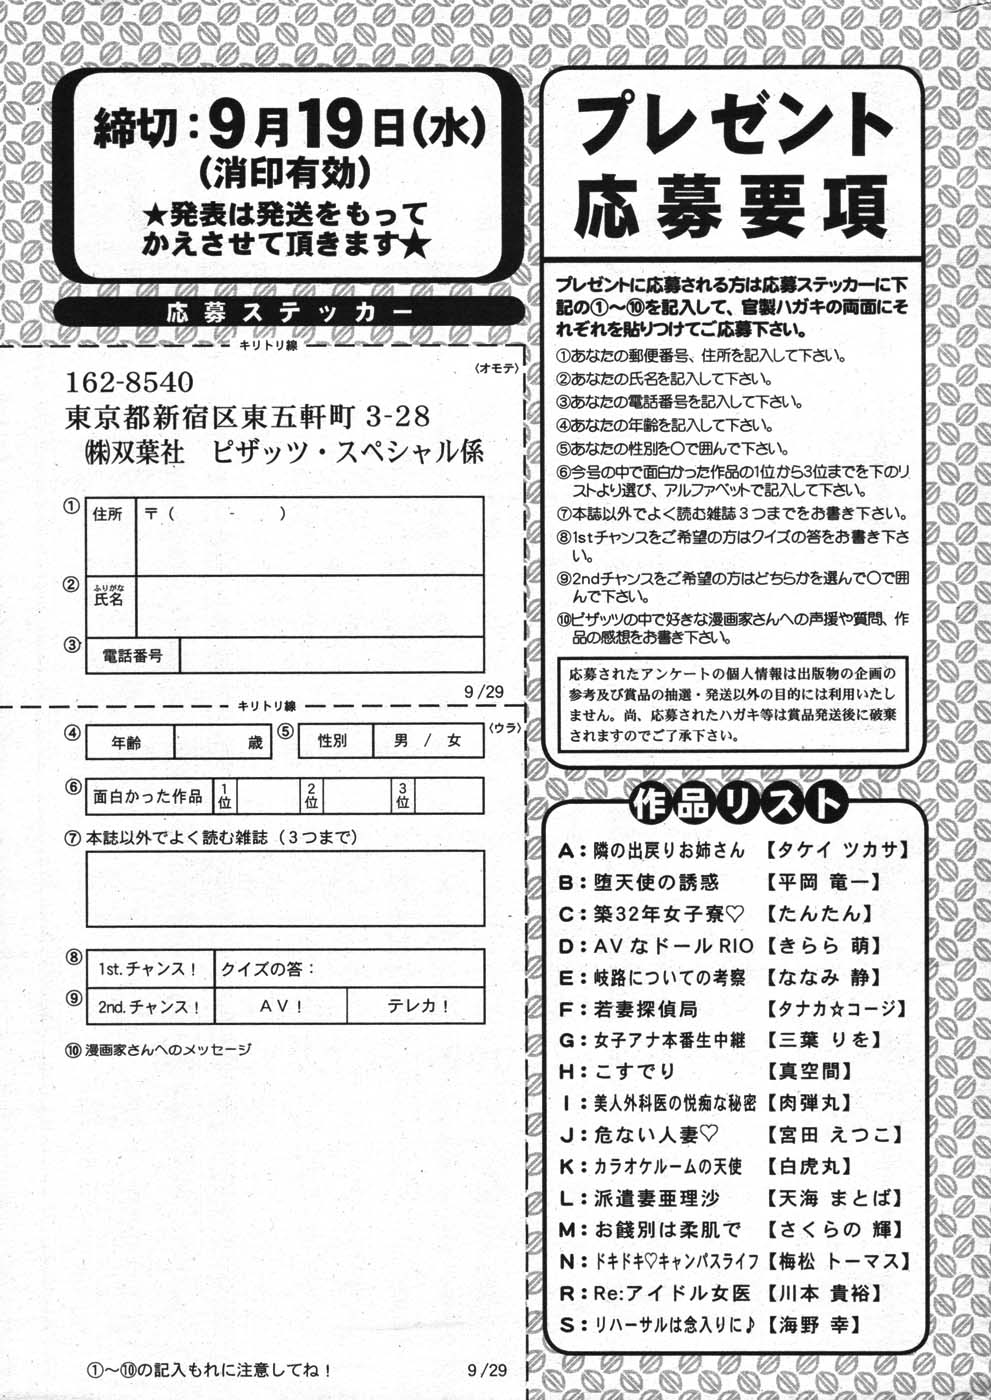 締切：9月19日（水）
（消印有効）
★発表は発送をもって
かえさせて頂きます★
応募ステッカー
キリトリ線
〈オモテ〉
162-8540
東京都新宿区東五軒町 3-28
㈱双葉社　ピザッツ・スペシャル係
① 住所 〒（　　-　　）
② ふりがな
氏名
③ 電話番号
9/29
キリトリ線
〈ウラ〉
④ 年齢 歳 ⑤ 性別 男 / 女
⑥ 面白かった作品 1位 2位 3位
⑦ 本誌以外でよく読む雑誌（3つまで）
⑧ 1st.チャンス！ クイズの答：
⑨ 2nd.チャンス！ AV！ テレカ！
⑩ 漫画家さんへのメッセージ
①〜⑩の記入もれに注意してね！ 9/29
プレゼント
応募要項
プレゼントに応募される方は応募ステッカーに下
記の①〜⑩を記入して、官製ハガキの両面にそ
れぞれを貼りつけてご応募下さい。
①あなたの郵便番号、住所を記入して下さい。
②あなたの氏名を記入して下さい。
③あなたの電話番号を記入して下さい。
④あなたの年齢を記入して下さい。
⑤あなたの性別を〇で囲んで下さい。
⑥今号の中で面白かった作品の1位から3位までを下のリ
ストより選び、アルファベットで記入して下さい。
⑦本誌以外でよく読む雑誌3つまでをお書き下さい。
⑧1stチャンスをご希望の方はクイズの答をお書き下さ
い。
⑨2ndチャンスをご希望の方はどちらかを選んで〇で囲
んで下さい。
⑩ピザッツの中で好きな漫画家さんへの声援や質問、作
品の感想をお書き下さい。
応募されたアンケートの個人情報は出版物の企画の
参考及び賞品の抽選・発送以外の目的には利用いたし
ません。尚、応募されたハガキ等は賞品発送後に破棄
されますのでご了承下さい。
作品リスト
A：隣の出戻りお姉さん 【タケイ ツカサ】
B：堕天使の誘惑 【平岡 竜一】
C：築32年女子寮♡ 【たんたん】
D：AVなドールRIO 【きらら 萌】
E：岐路についての考察 【ななみ 静】
F：若妻探偵局 【タナカ☆コージ】
G：女子アナ本番生中継 【三葉 りを】
H：こすでり 【真空間】
I：美人外科医の悦痴な秘密 【肉弾丸】
J：危ない人妻♡ 【宮田 えつこ】
K：カラオケルームの天使 【白虎丸】
L：派遣妻亜理沙 【天海 まとば】
M：お餞別は柔肌で 【さくらの 輝】
N：ドキドキ♡キャンパスライフ 【梅松 トーマス】
R：Re:アイドル女医 【川本 貴裕】
S：リハーサルは念入りに♪ 【海野 幸】